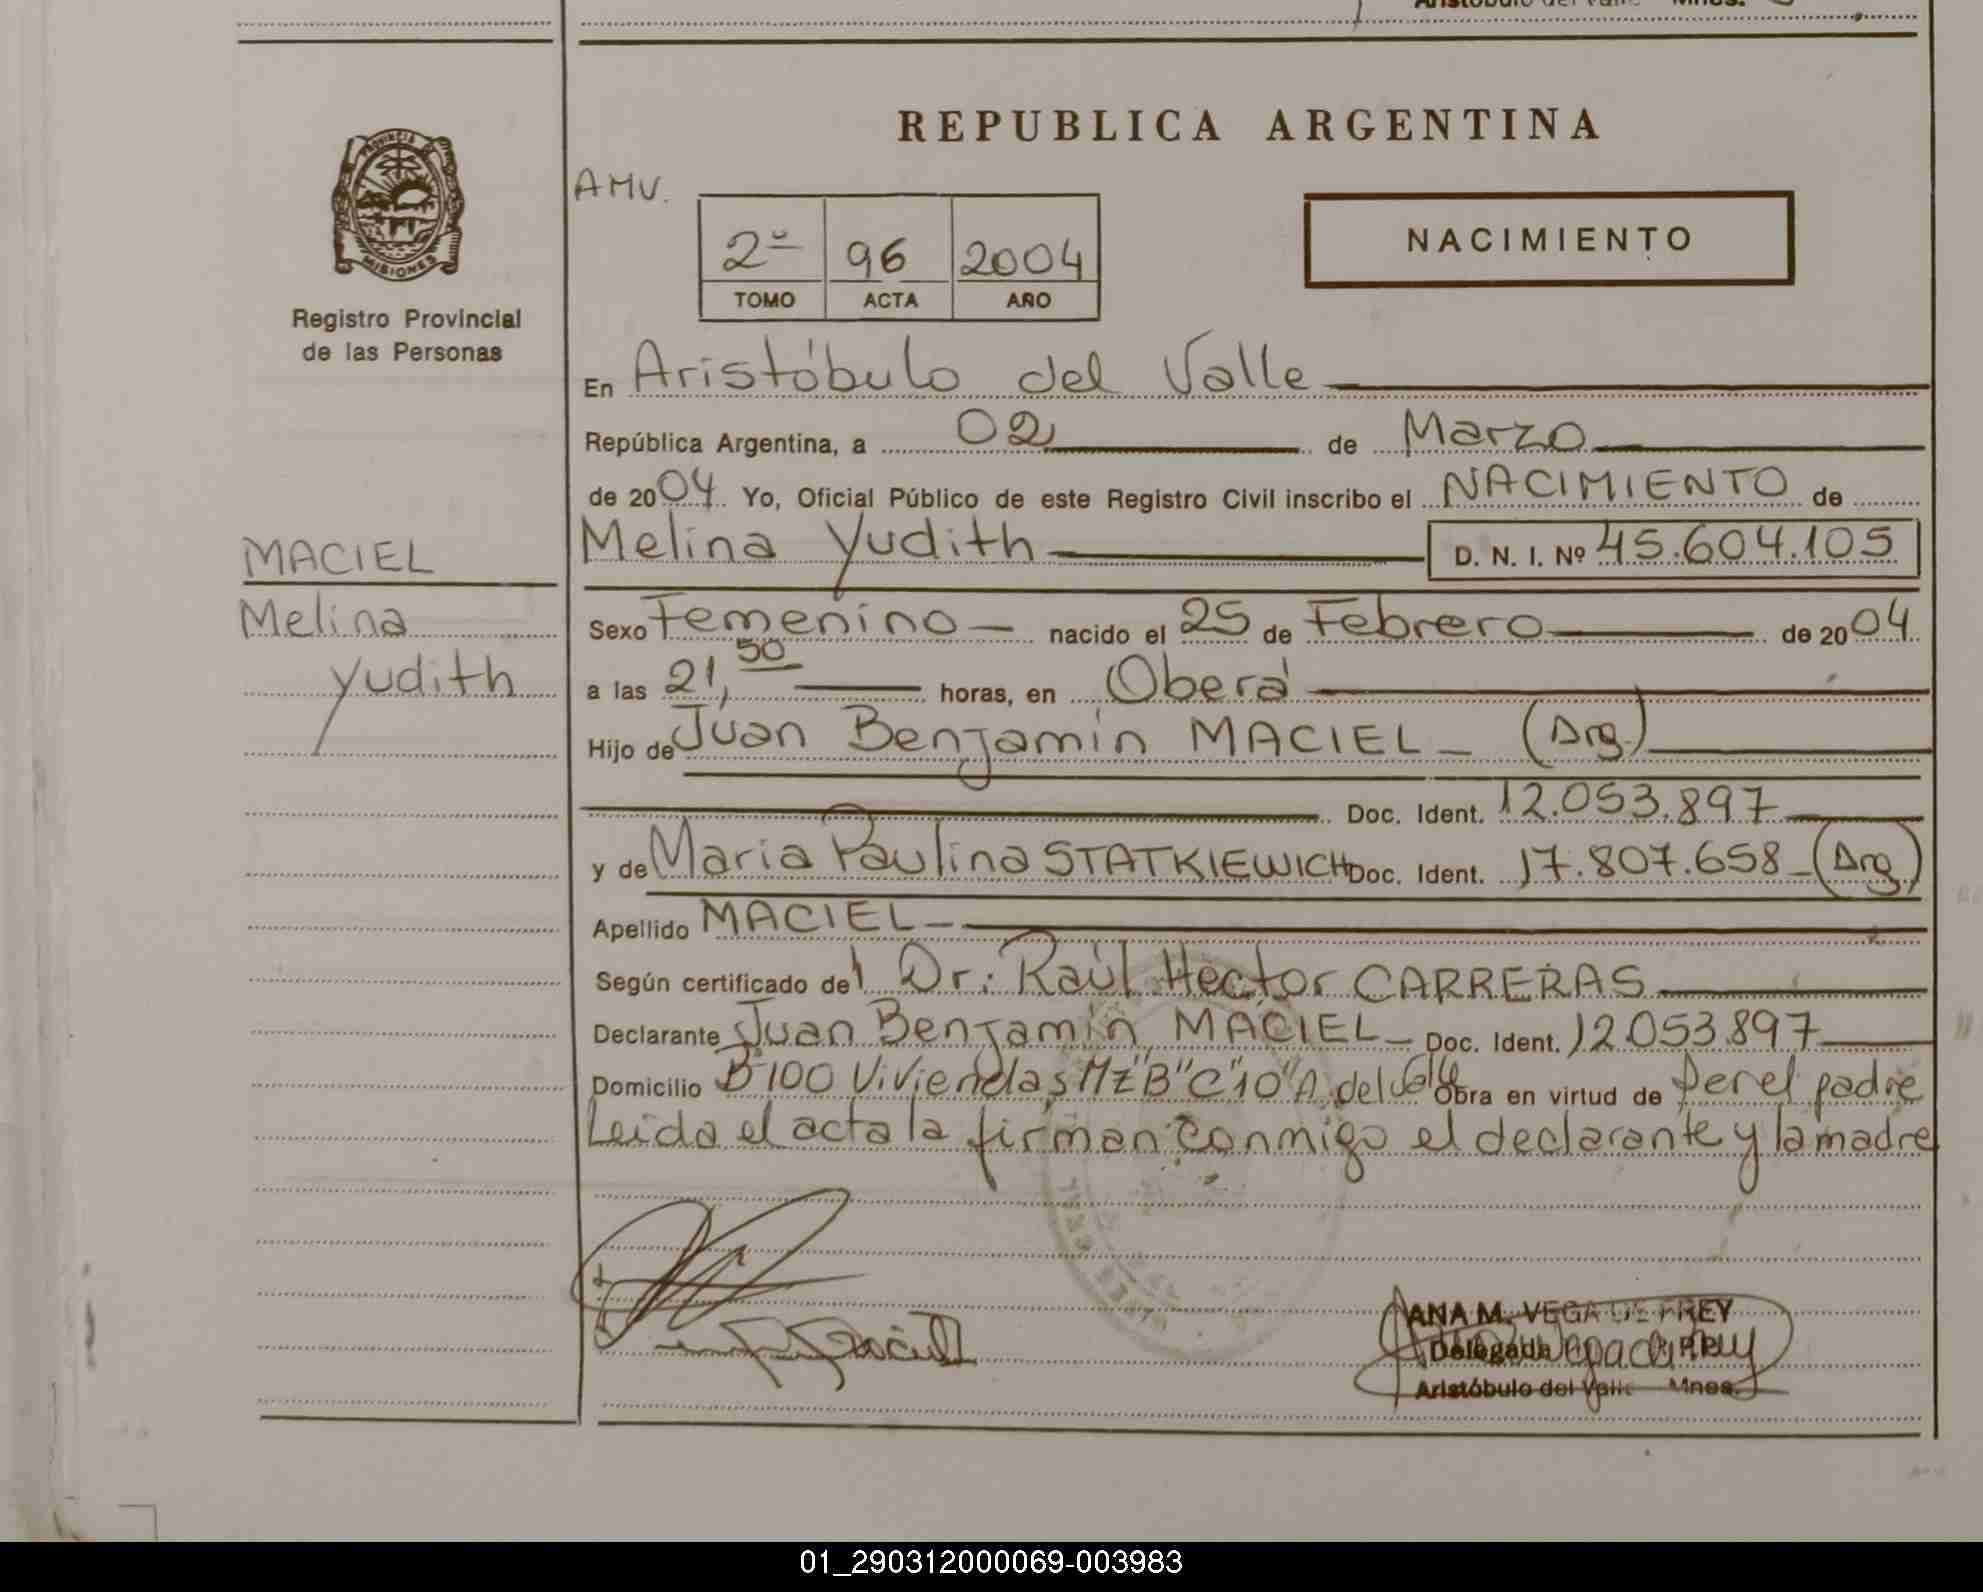 REPUBLICA ARGENTINA
PROVINCIA
MISIONES
Registro Provincial
de las Personas
AMV.
2º 96 2004
TOMO ACTA AÑO
NACIMIENTO
En Aristóbulo del Valle
República Argentina, a 02 de Marzo
de 2004 Yo, Oficial Público de este Registro Civil inscribo el NACIMIENTO de
MACIEL
Melina
Yudith
Melina Yudith D. N. I. Nº 45.604.105
Sexo Femenino nacido el 25 de Febrero de 2004
a las 21,50 horas, en Oberá
Hijo de Juan Benjamín MACIEL (Arg.)
Doc. Ident. 12.053.897
y de Maria Paulina STATKIEWICH Doc. Ident. 17.807.658 (Arg.)
Apellido MACIEL
Según certificado del Dr: Raúl Hector CARRERAS
Declarante Juan Benjamín MACIEL Doc. Ident. 12.053.897
Domicilio Bº 100 Viviendas Mz "B" C "10" A. del Valle Obra en virtud de ser el padre
Leida el acta la firman conmigo el declarante y la madre
ANA M. VEGA DE FREY
Delegada
Aristóbulo del Valle Mnes.
01_290312000069-003983